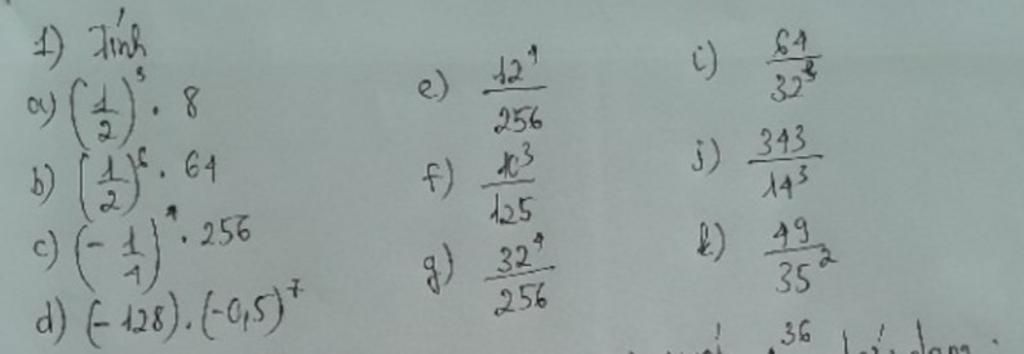 1) Tính
a) (1/2)³ . 8
b) (1/2)⁶ . 64
c) (-1/4)⁴ . 256
d) (-128).(-0,5)⁷
e) 12⁴/256
f) /125
g) 32⁴/256
i) 64/32
j) 343/14³
k) 49/35²
36